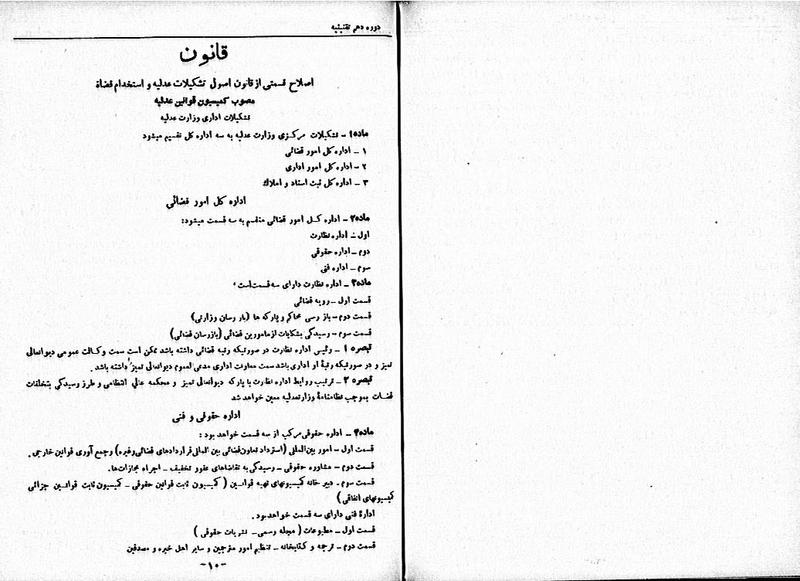 دوره دهم تقنینیه
قانون
اصلاح قسمتی از قانون اصول تشکیلات عدلیه و استخدام قضاة
مصوب کمیسیون قوانین عدلیه
تشکیلات اداری وزارت عدلیه
ماده۱ - تشکیلات مرکزی وزارت عدلیه به سه اداره کل تقسیم میشود
۱ - اداره کل امور قضائی
۲ - اداره کل امور اداری
۳ - اداره کل ثبت اسناد و املاك
اداره کل امور قضائی
ماده۲ - اداره کل امور قضائی منقسم به سه قسمت میشود:
اول - اداره نظارت
دوم - اداره حقوقی
سوم - اداره فنی
ماده۳ - اداره نظارت دارای سه قسمت است:
قسمت اول - رویه قضائی
قسمت دوم - بازرسی محاکم و پارکه ها (بازرسان وزارتی)
قسمت سوم - رسیدگی بشکایات از مامورین قضائی (بازرسان قضائی)
تبصره ۱ - رئیس اداره نظارت در صورتیکه رتبه قضائی داشته باشد ممکن است سمت وکالت عمومی دیوانعالی
تمیز و در صورتیکه رتبهٔ او اداری باشد سمت معاونت اداری مدعی العموم دیوانعالی تمیز را داشته باشد.
تبصره ۲ - ترتیب روابط اداره نظارت با پارکه دیوانعالی تمیز و محکمه عالی انتظامی و طرز رسیدگی بتخلفات
قضات بموجب نظامنامهٔ وزارتعدلیه معین خواهد شد
اداره حقوقی و فنی
ماده۴ - اداره حقوقی مرکب از سه قسمت خواهد بود:
قسمت اول - امور بین‌المللی (استرداد تعاون قضائی بین المللی قراردادهای قضائی وغیره) و جمع آوری قوانین خارجی.
قسمت دوم - مشاوره حقوقی - رسیدگی به تقاضاهای عفو و تخفیف - اجراء مجازات‌ها.
قسمت سوم - دبیر خانه کمیسیونهای تهیه قوانین (کمیسیون ثابت قوانین حقوقی - کمیسیون ثابت قوانین جزائی
کمیسیونهای اتفاقی)
ادارهٔ فنی دارای سه قسمت خواهد بود.
قسمت اول - مطبوعات (مجله رسمی - نشریات حقوقی)
قسمت دوم - ترجمه و کتابخانه - تنظیم امور مترجمین و سایر اهل خبره و مصدقین
-۱۰-